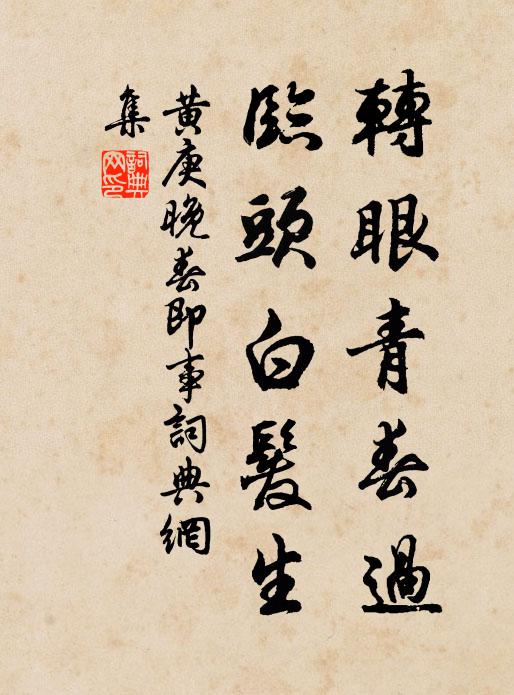 轉眼青春過
臨頭白髮生
黄庚晚春即事詞典網
集
詞典
网印